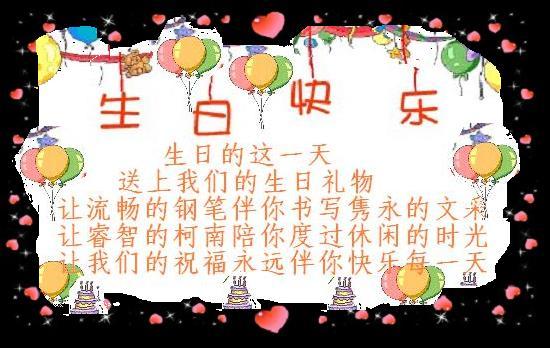 生日快乐
生日的这一天
送上我们的生日礼物
让流畅的钢笔伴你书写隽永的文采
让睿智的柯南陪你度过休闲的时光
让我们的祝福永远伴你快乐每一天